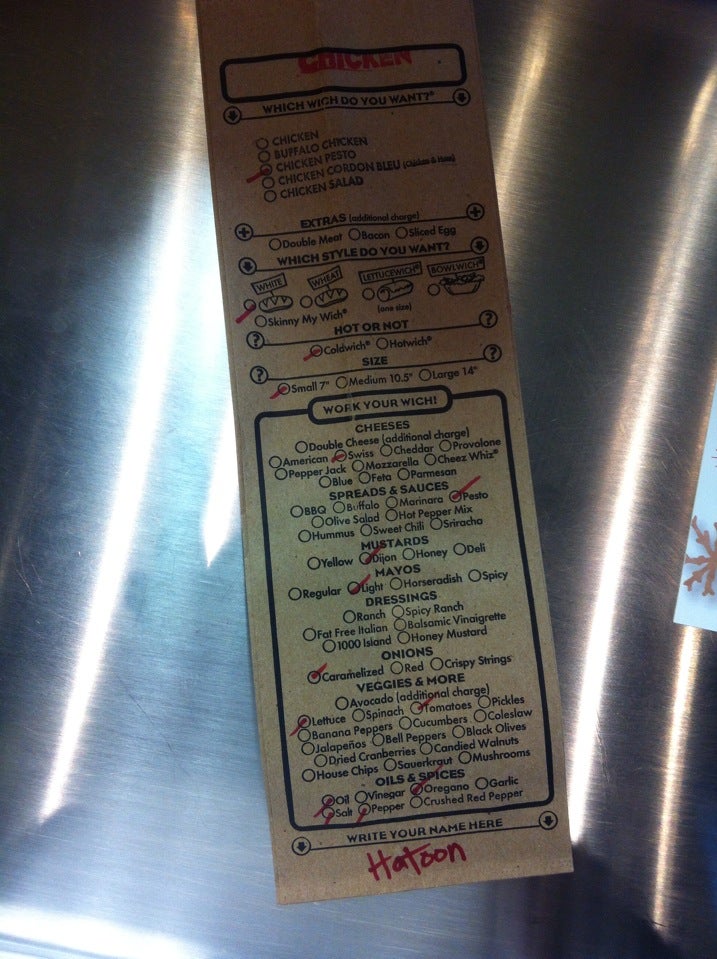 CHICKEN
WHICH WICH DO YOU WANT?®
CHICKEN
BUFFALO CHICKEN
CHICKEN PESTO
CHICKEN CORDON BLEU (Chicken & Ham)
CHICKEN SALAD
EXTRAS (additional charge)
Double Meat Bacon Sliced Egg
WHICH STYLE DO YOU WANT?
WHITE WHEAT LETTUCEWICH® BOWLWICH®
(one size)
Skinny My Wich®
HOT OR NOT
Coldwich® Hotwich®
SIZE
Small 7" Medium 10.5" Large 14"
WORK YOUR WICH!
CHEESES
Double Cheese (additional charge)
American Swiss Cheddar Provolone
Pepper Jack Mozzarella Cheez Whiz®
Blue Feta Parmesan
SPREADS & SAUCES
BBQ Buffalo Marinara Pesto
Olive Salad Hot Pepper Mix
Hummus Sweet Chili Sriracha
MUSTARDS
Yellow Dijon Honey Deli
MAYOS
Regular Light Horseradish Spicy
DRESSINGS
Ranch Spicy Ranch
Fat Free Italian Balsamic Vinaigrette
1000 Island Honey Mustard
ONIONS
Caramelized Red Crispy Strings
VEGGIES & MORE
Avocado (additional charge)
Lettuce Spinach Tomatoes Pickles
Banana Peppers Cucumbers Coleslaw
Jalapeños Bell Peppers Black Olives
Dried Cranberries Candied Walnuts
House Chips Sauerkraut Mushrooms
OILS & SPICES
Oil Vinegar Oregano Garlic
Salt Pepper Crushed Red Pepper
WRITE YOUR NAME HERE
Hatoon